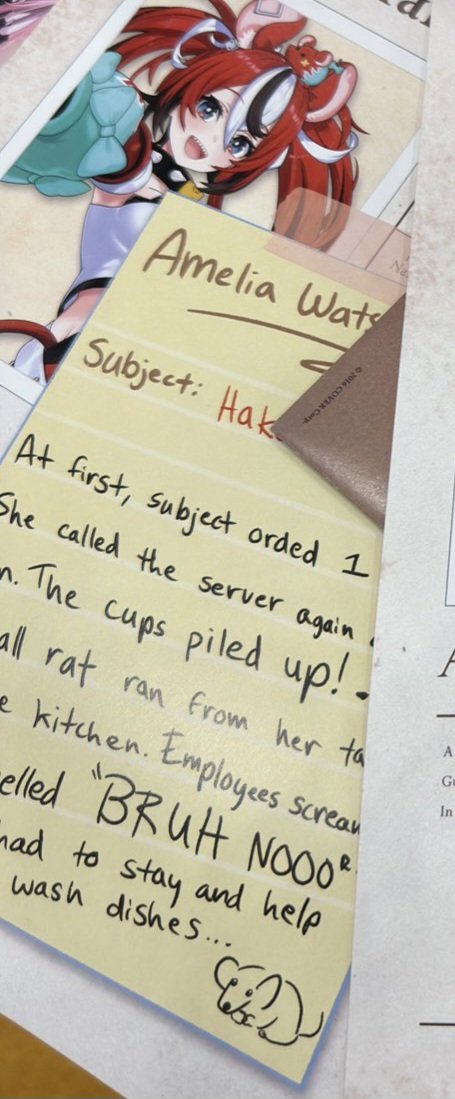 Amelia Wats
© 2016 COVER Corp.
Subject: Hak
At first, subject orded 1
She called the server again
n. The cups piled up!
all rat ran from her ta
e kitchen. Employees scream
elled "BRUH NOOO"
had to stay and help
wash dishes...
A
In